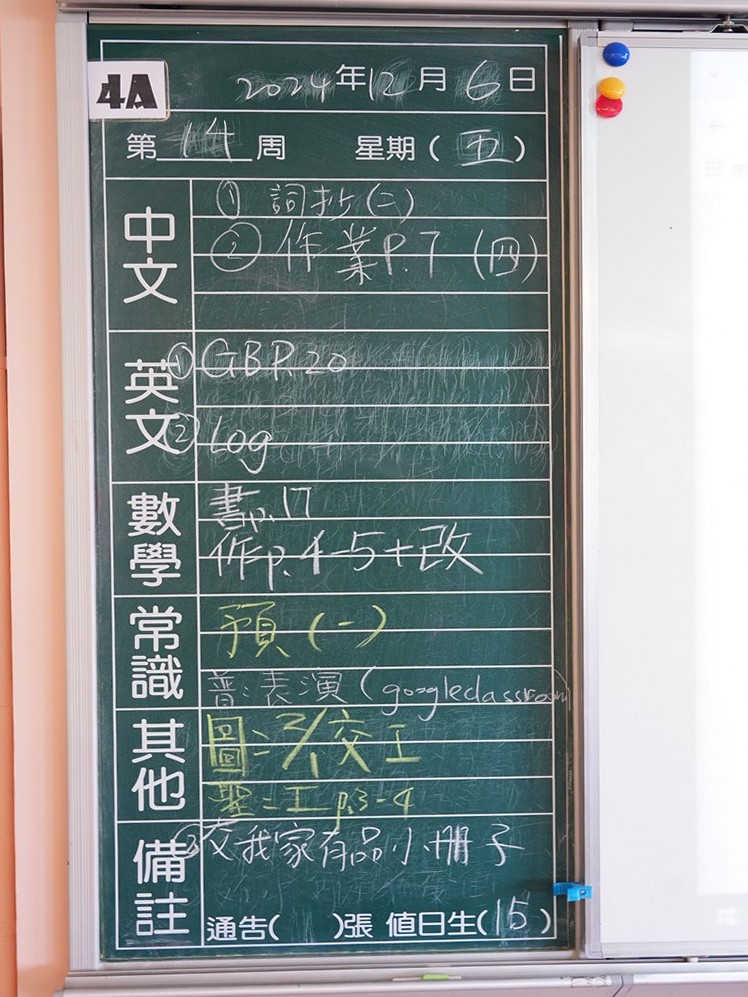 4A
2024年12月6日
第14周 星期(五)
中文
① 詞抄(二)
② 作業P.7 (四)
英文
① GBP.20
② Log
數學
書p.17
作p.4-5+改
常識
預(一)
普:表演(googleclassroom)
其他
圖:2/1交工
聖:工p.3-4
備註
③交我家有品小冊子
通告( )張 值日生(15)